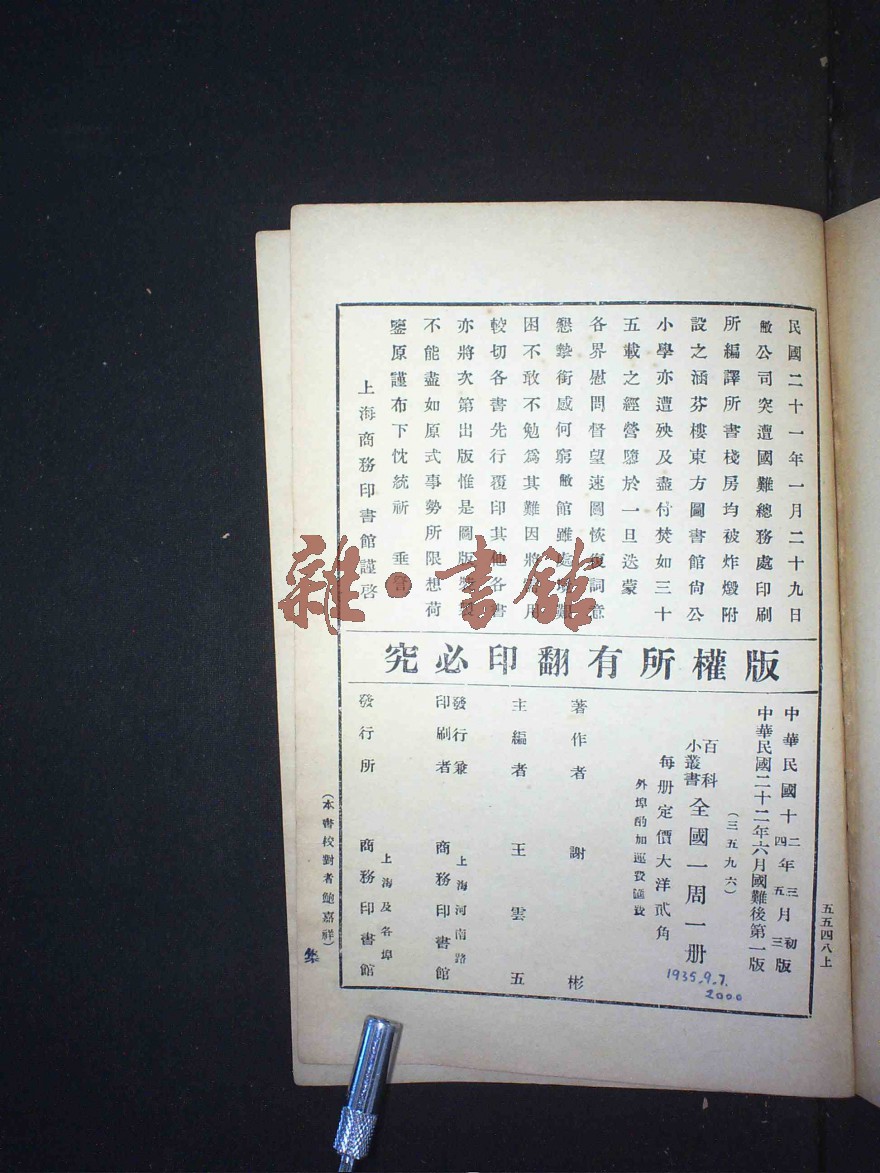 民國二十一年一月二十九日
敝公司突遭國難總務處印刷
所編譯所書棧房均被炸燬附
設之涵芬樓東方圖書館尙公
小學亦遭殃及盡付焚如三十
五載之經營隳於一旦迭蒙
各界慰問督望速圖恢復詞意
懇摯銜感何窮敝館雖處境艱
困不敢不勉爲其難因將需用
較切各書先行覆印其他各書
亦將次第出版惟是圖版裝製
不能盡如原式事勢所限想荷
鑒原謹布下忱統祈 垂詧
上海商務印書館謹啓
版權所有翻印必究
五五四八上
中華民國十二年三月初版
四 五 三
中華民國二十二年六月國難後第一版
(三五九六)
百科小叢書 全國一周一册
每册定價大洋貳角
外埠酌加運費匯費
著作者 謝彬
主編者 王雲五
發行兼印刷者 上海河南路 商務印書館
發行所 上海及各埠 商務印書館
(本書校對者鮑嘉祥)
集
1935.9.7.
2000
雜·書館